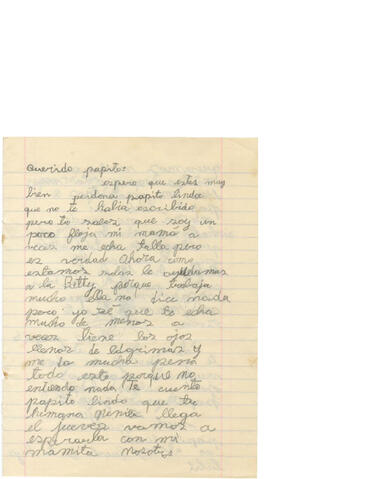 Querido papito:
espero que estes muy
bien perdona papito lindo
que no te habia escribido
pero tu sabes que soy un
poco floja mi mamá a
veces me echa talla pero
es verdad ahora como
estamos solas le ayudamos
a la Betty porque trabaja
mucho ella no dice nada
pero yo sé que te echa
mucho de menos a
veces tiene los ojos
llenos de lágrimas y
me da mucha pena
todo esto porque no
entiendo nada te cuento
papito lindo que tu
humana llega
el jueves vamos a
esperarla con mi
mamita nosotras